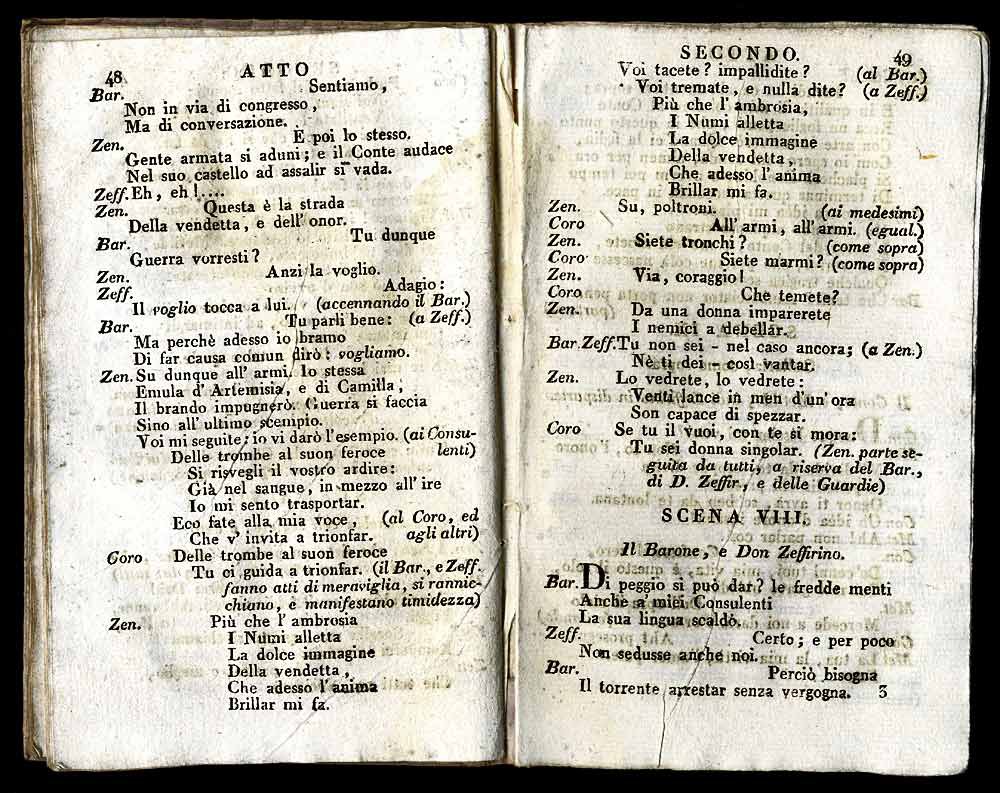 48 ATTO
Bar. Sentiamo,
Non in via di congresso,
Ma di conversazione.
Zen. E poi lo stesso.
Gente armata si aduni; e il Conte audace
Nel suo castello ad assalir si vada.
Zeff. Eh, eh!....
Zen. Questa è la strada
Della vendetta, e dell' onor.
Bar. Tu dunque
Guerra vorresti?
Zen. Anzi la voglio.
Zeff. Adagio:
Il voglio tocca a lui. (accennando il Bar.)
Bar. Tu parli bene: (a Zeff.)
Ma perchè adesso io bramo
Di far causa comun dirò: vogliamo.
Zen. Su dunque all' armi. Io stessa
Emula d' Artemisia, e di Camilla,
Il brando impugnerò. Guerra si faccia
Sino all' ultimo scempio.
Voi mi seguite; io vi darò l'esempio. (ai Consu-
Delle trombe al suon feroce lenti)
Si risvegli il vostro ardire:
Già nel sangue, in mezzo all' ire
Io mi sento trasportar.
Eco fate alla mia voce, (al Coro, ed
Che v' invita a trionfar. agli altri)
Coro Delle trombe al suon feroce
Tu ci guida a trionfar. (il Bar., e Zeff.
fanno atti di meraviglia, si rannic-
chiano, e manifestano timidezza)
Zen. Più che l' ambrosia
I Numi alletta
La dolce immagine
Della vendetta,
Che adesso l' anima
Brillar mi fa.
SECONDO. 49
Voi tacete? impallidite? (al Bar.)
Voi tremate, e nulla dite? (a Zeff.)
Più che l' ambrosia,
I Numi alletta
La dolce immagine
Della vendetta,
Che adesso l' anima
Brillar mi fa.
Zen. Su, poltroni. (ai medesimi)
Coro All' armi, all' armi. (egual.)
Zen. Siete tronchi? (come sopra)
Coro Siete marmi? (come sopra)
Zen. Via, coraggio!
Coro Che temete?
Zen. Da una donna imparerete
I nemici a debellar.
Bar. Zeff. Tu non sei - nel caso ancora; (a Zen.)
Nè ti dei - così vantar.
Zen. Lo vedrete, lo vedrete:
Venti lance in men d'un' ora
Son capace di spezzar.
Coro Se tu il vuoi, con te si mora:
Tu sei donna singolar. (Zen. parte se-
guita da tutti, a riserva del Bar.,
di D. Zeffir., e delle Guardie)
SCENA VIII.
Il Barone, e Don Zeffirino.
Bar. Di peggio si può dar? le fredde menti
Anche a' miei Consulenti
La sua lingua scaldò.
Zeff. Certo; e per poco
Non sedusse anche noi.
Bar. Perciò bisogna
Il torrente arrestar senza vergogna. 3